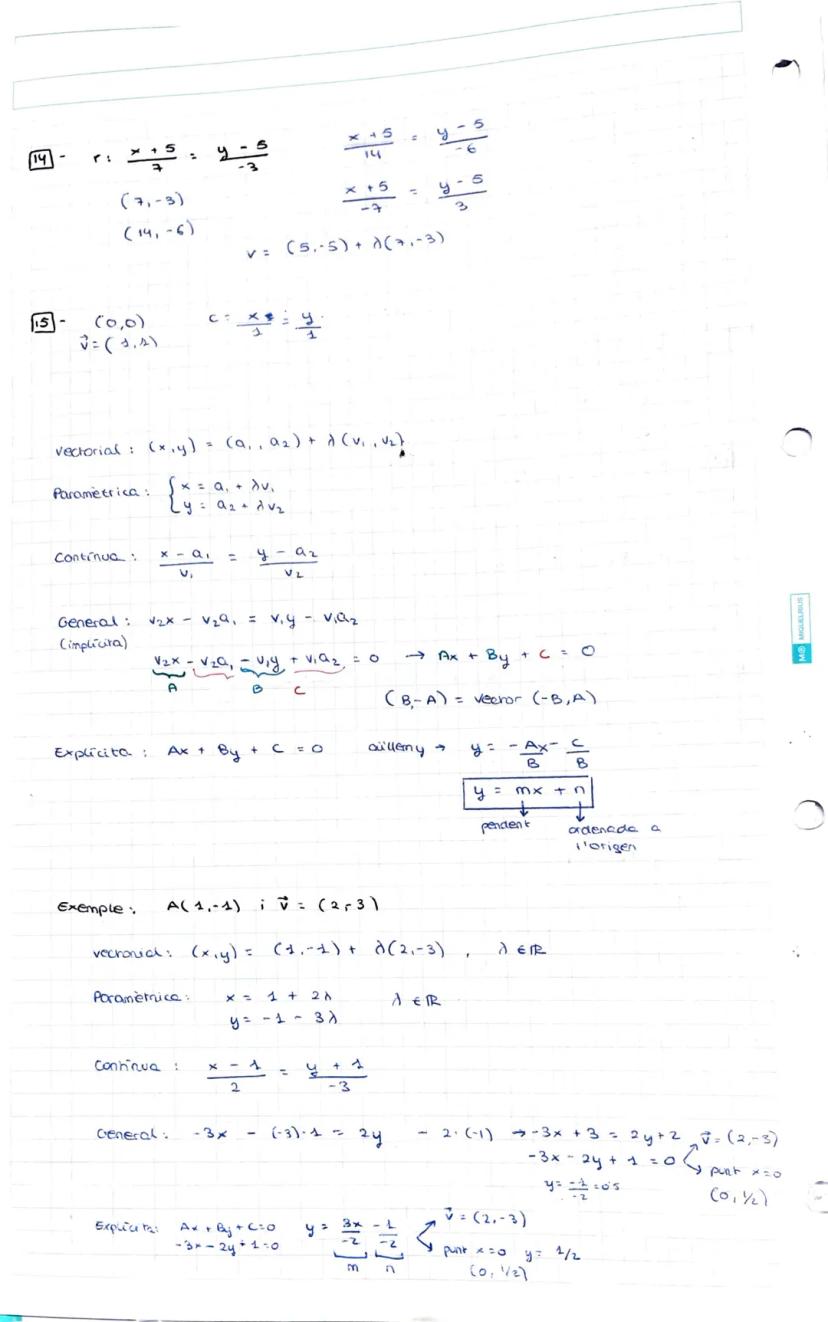 14 - r: x + 5 / 7 = y - 5 / -3
x + 5 / 14 = y - 5 / -6
(7, -3)
x + 5 / -7 = y - 5 / 3
(14, -6)
v = (5, -5) + λ(7, -3)
15 - (0,0) C = x / 1 = y / 1
v⃗ = (1,1)
Vectorial : (x,y) = (a₁, a₂) + λ(v₁, v₂)
Paramètrica : { x = a₁ + λv₁
y = a₂ + λv₂
Contínua : x - a₁ / v₁ = y - a₂ / v₂
General : v₂x - v₂a₁ = v₁y - v₁a₂
(implícita)
v₂x - v₂a₁ - v₁y + v₁a₂ = 0 → Ax + By + C = 0
A B C
(B, -A) = vector (-B, A)
Explícita : Ax + By + C = 0 aïllem y → y = -Ax / B - C / B
y = mx + n
pendent ordenada a
l'origen
Exemple : A(1, -1) i v⃗ = (2, -3)
vectorial : (x,y) = (1, -1) + λ(2, -3) , λ ∈ ℝ
Paramètrica : x = 1 + 2λ λ ∈ ℝ
y = -1 - 3λ
Contínua : x - 1 / 2 = y + 1 / -3
General : -3x - (-3)·1 = 2y - 2·(-1) → -3x + 3 = 2y + 2 v⃗ = (2, -3)
-3x - 2y + 1 = 0 punt x=0
y = -1 / -2 = 0'5 (0, 1/2)
Explícita : Ax + By + C = 0 y = 3x / -2 - 1 / -2 v⃗ = (2, -3)
-3x - 2y + 1 = 0 punt x=0 y = 1/2
m n (0, 1/2)
MIQUELRIUS